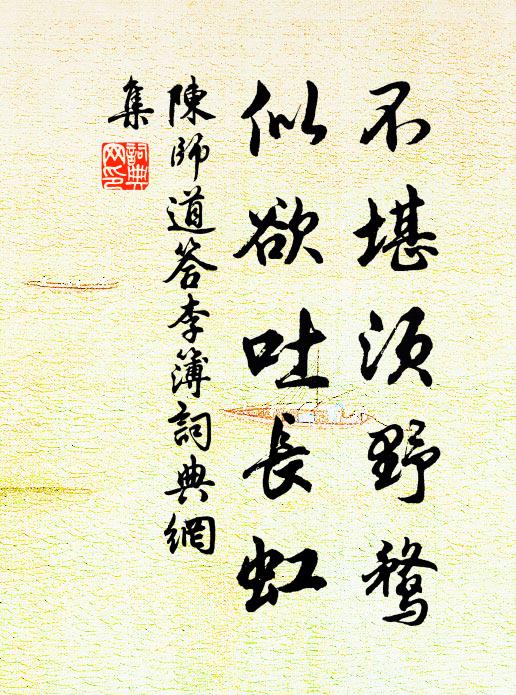 不堪須野鶩
似欲吐長虹
陳師道答李簿詞典網
集
詞典網印